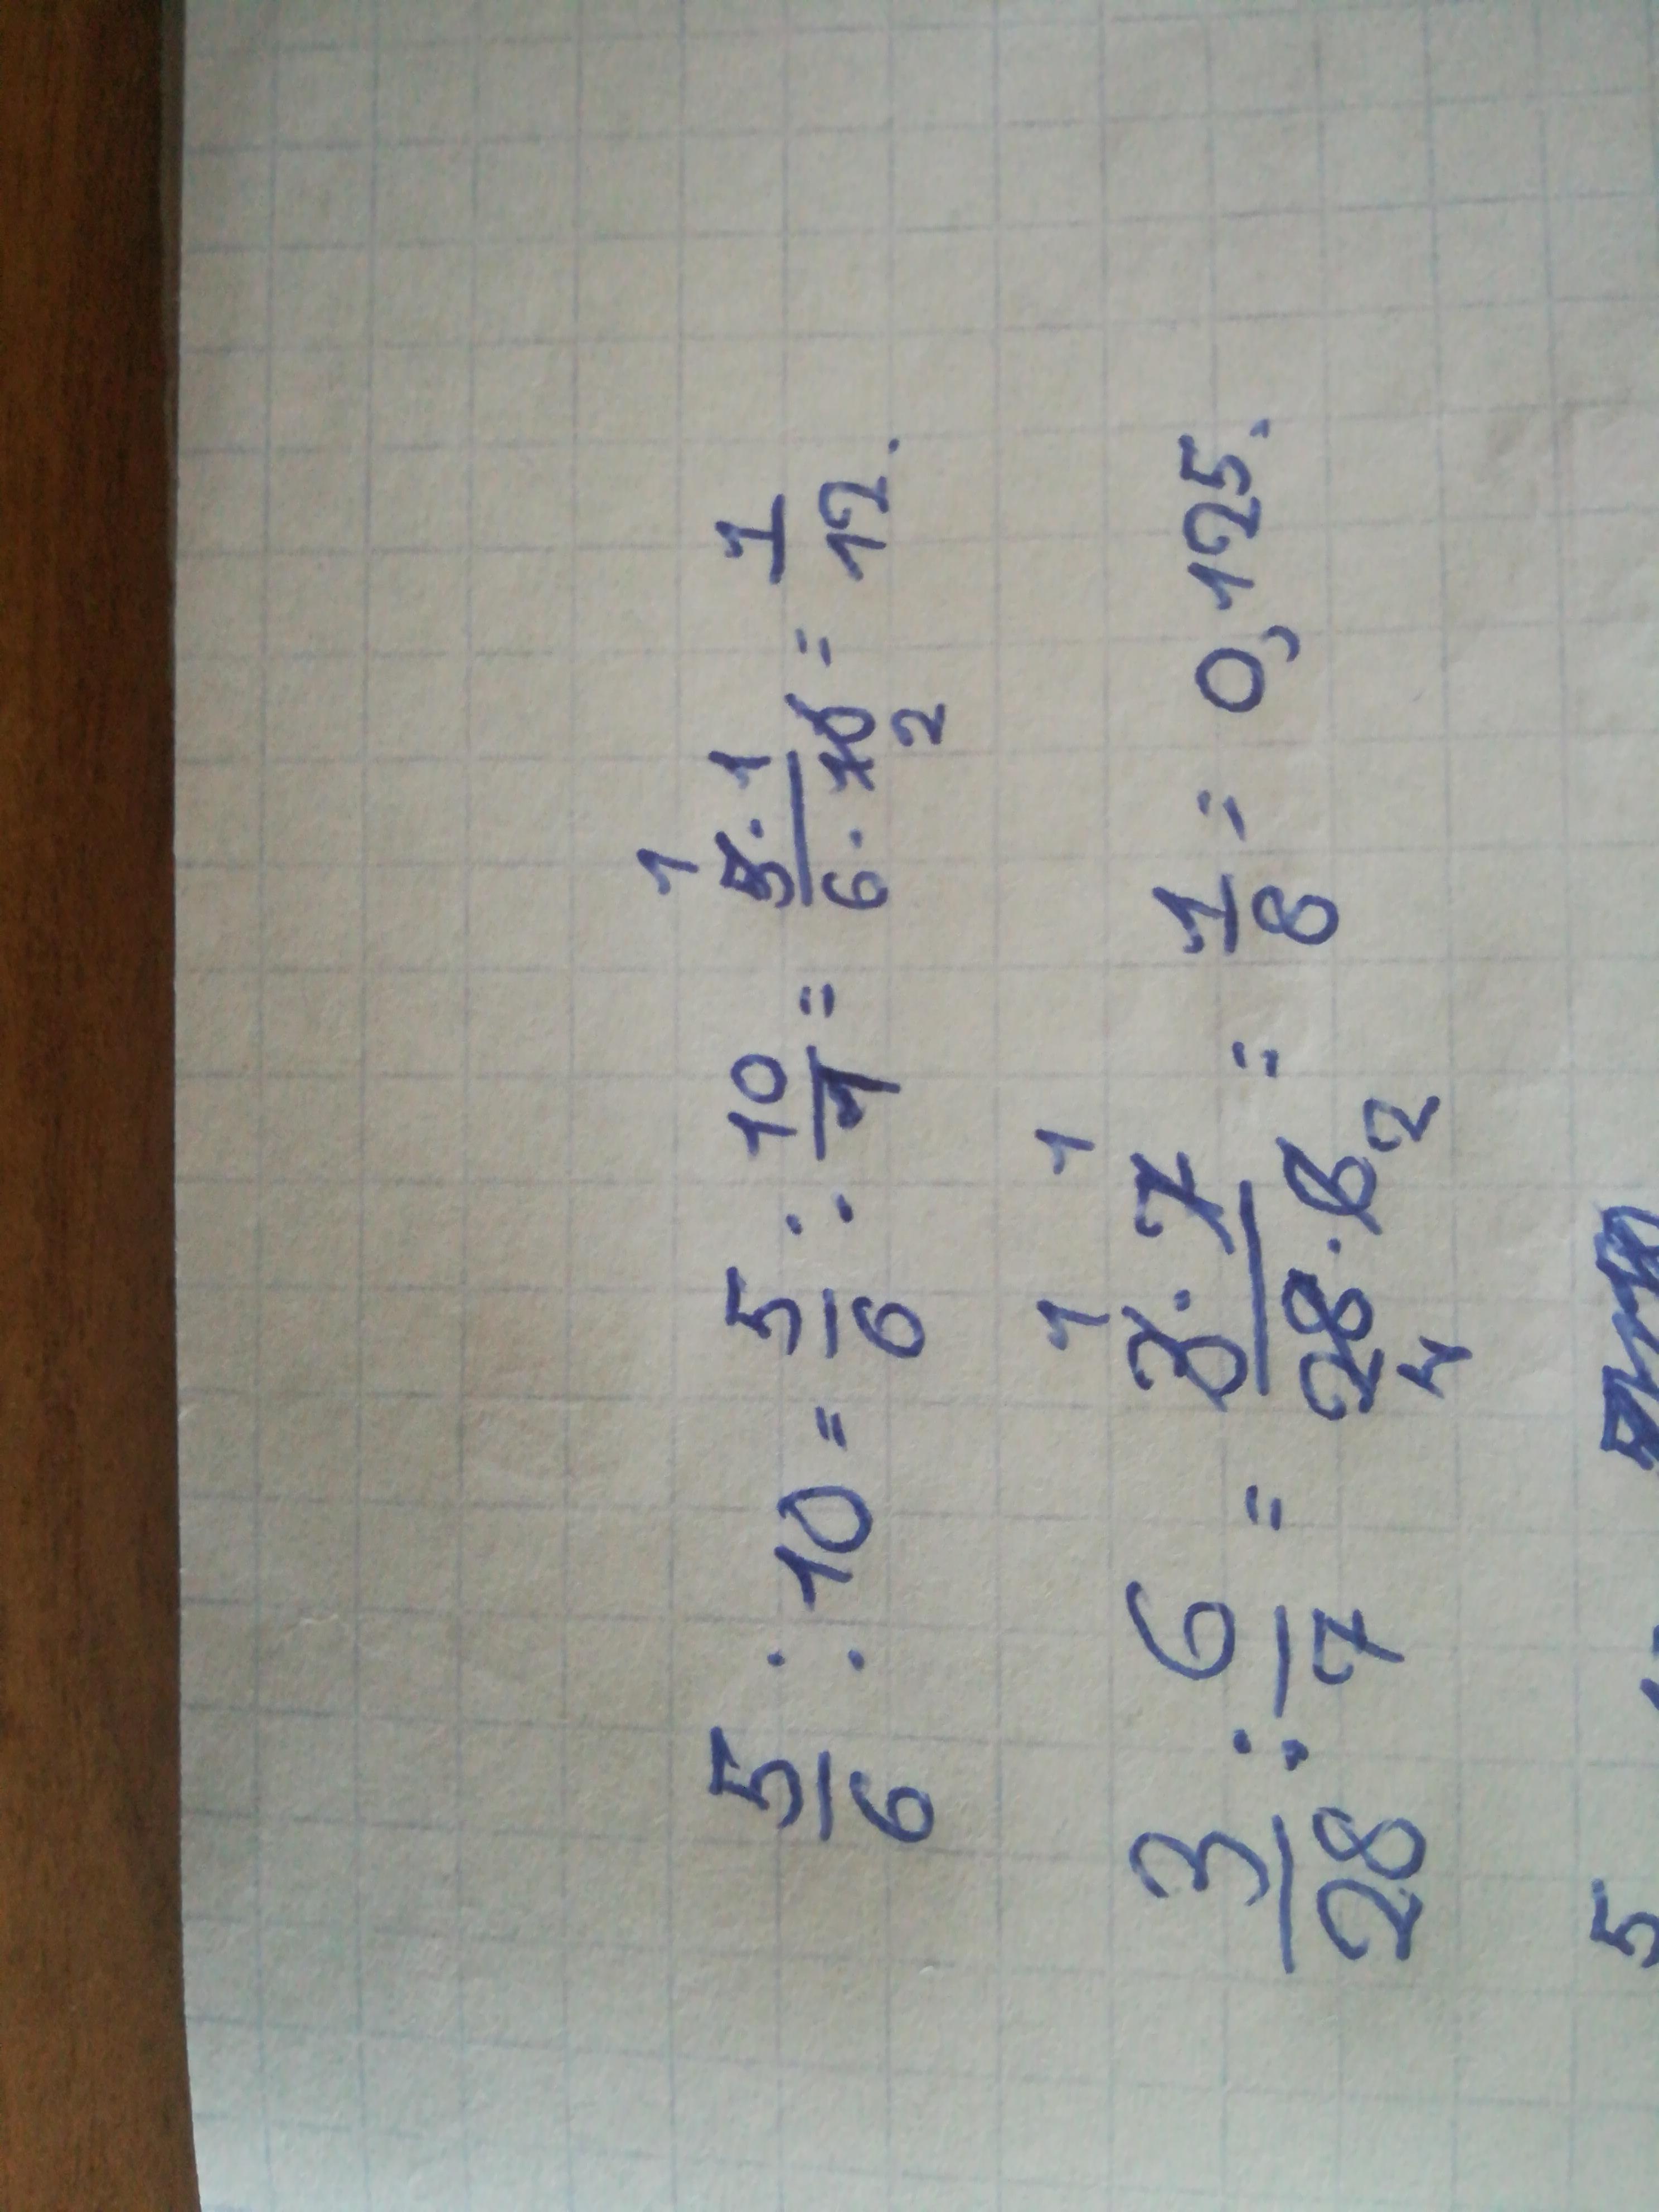 5/6 : 10 = 5/6 : 10/1 = 5·1/6·10 1 2 = 1/12.
3/28 : 6/7 = 3·7/28·6 1 1 4 2 = 1/8 = 0,125.
5